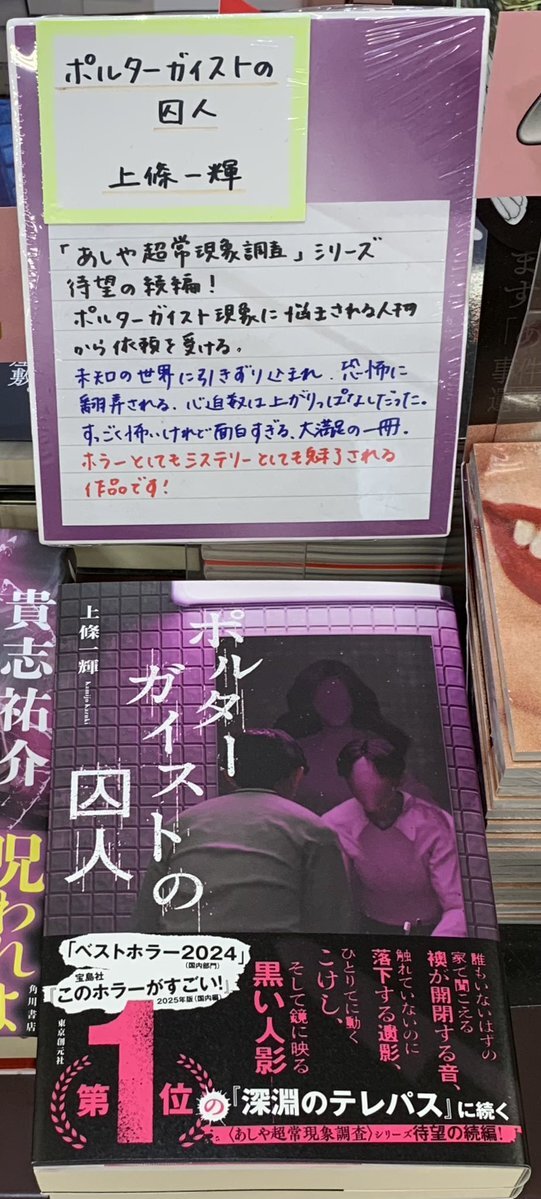 ポルターガイストの
囚人
上條一輝
「あしや超常現象調査」シリーズ
待望の続編！
ポルターガイスト現象に悩まされる人物
から依頼を受ける。
未知の世界に引きずり込まれ、恐怖に
翻弄される、心迫数は上がりっぱなしだった。
すっごく怖いけれど面白すぎる、大満足の一冊。
ホラーとしてもミステリーとしても魅了される
作品です！
上條一輝
Kamijo Kazuki
ポルター
ガイストの
囚人
「ベストホラー2024」
(国内部門)
宝島社
『このホラーがすごい！
2025年版(国内編)
東京創元社
第1位の『深淵のテレパス』に続く
〈あしや超常現象調査〉シリーズ待望の続編！
誰もいないはずの
家で聞こえる
襖が開閉する音、
触れていないのに
落下する遺影、
ひとりでに動く
こけし、
そして鏡に映る
黒い人影
貴志祐介
呪われよ
角川書店